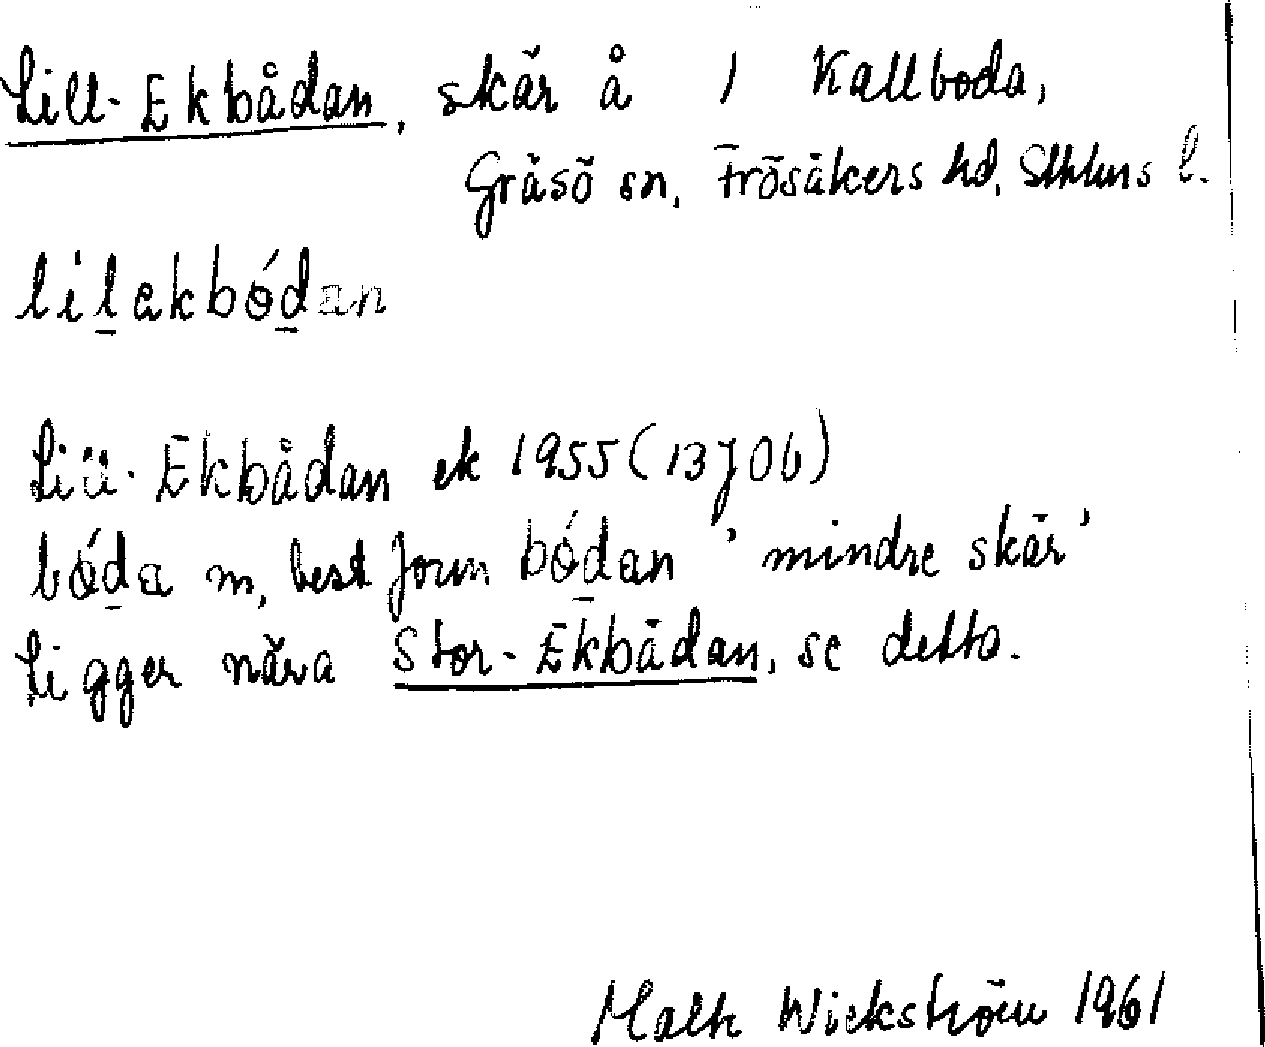 Lill-Ekbådan, skär å 1 Kallboda,
Gräsö sn, Frösåkers hd, Sthlms l.
lilekbódan
Lill-Ekbådan ek 1955 (13J0b)
bóda m, best form bódan 'mindre skär'
Ligger nära Stor-Ekbådan, se detto.
Wickström 1961